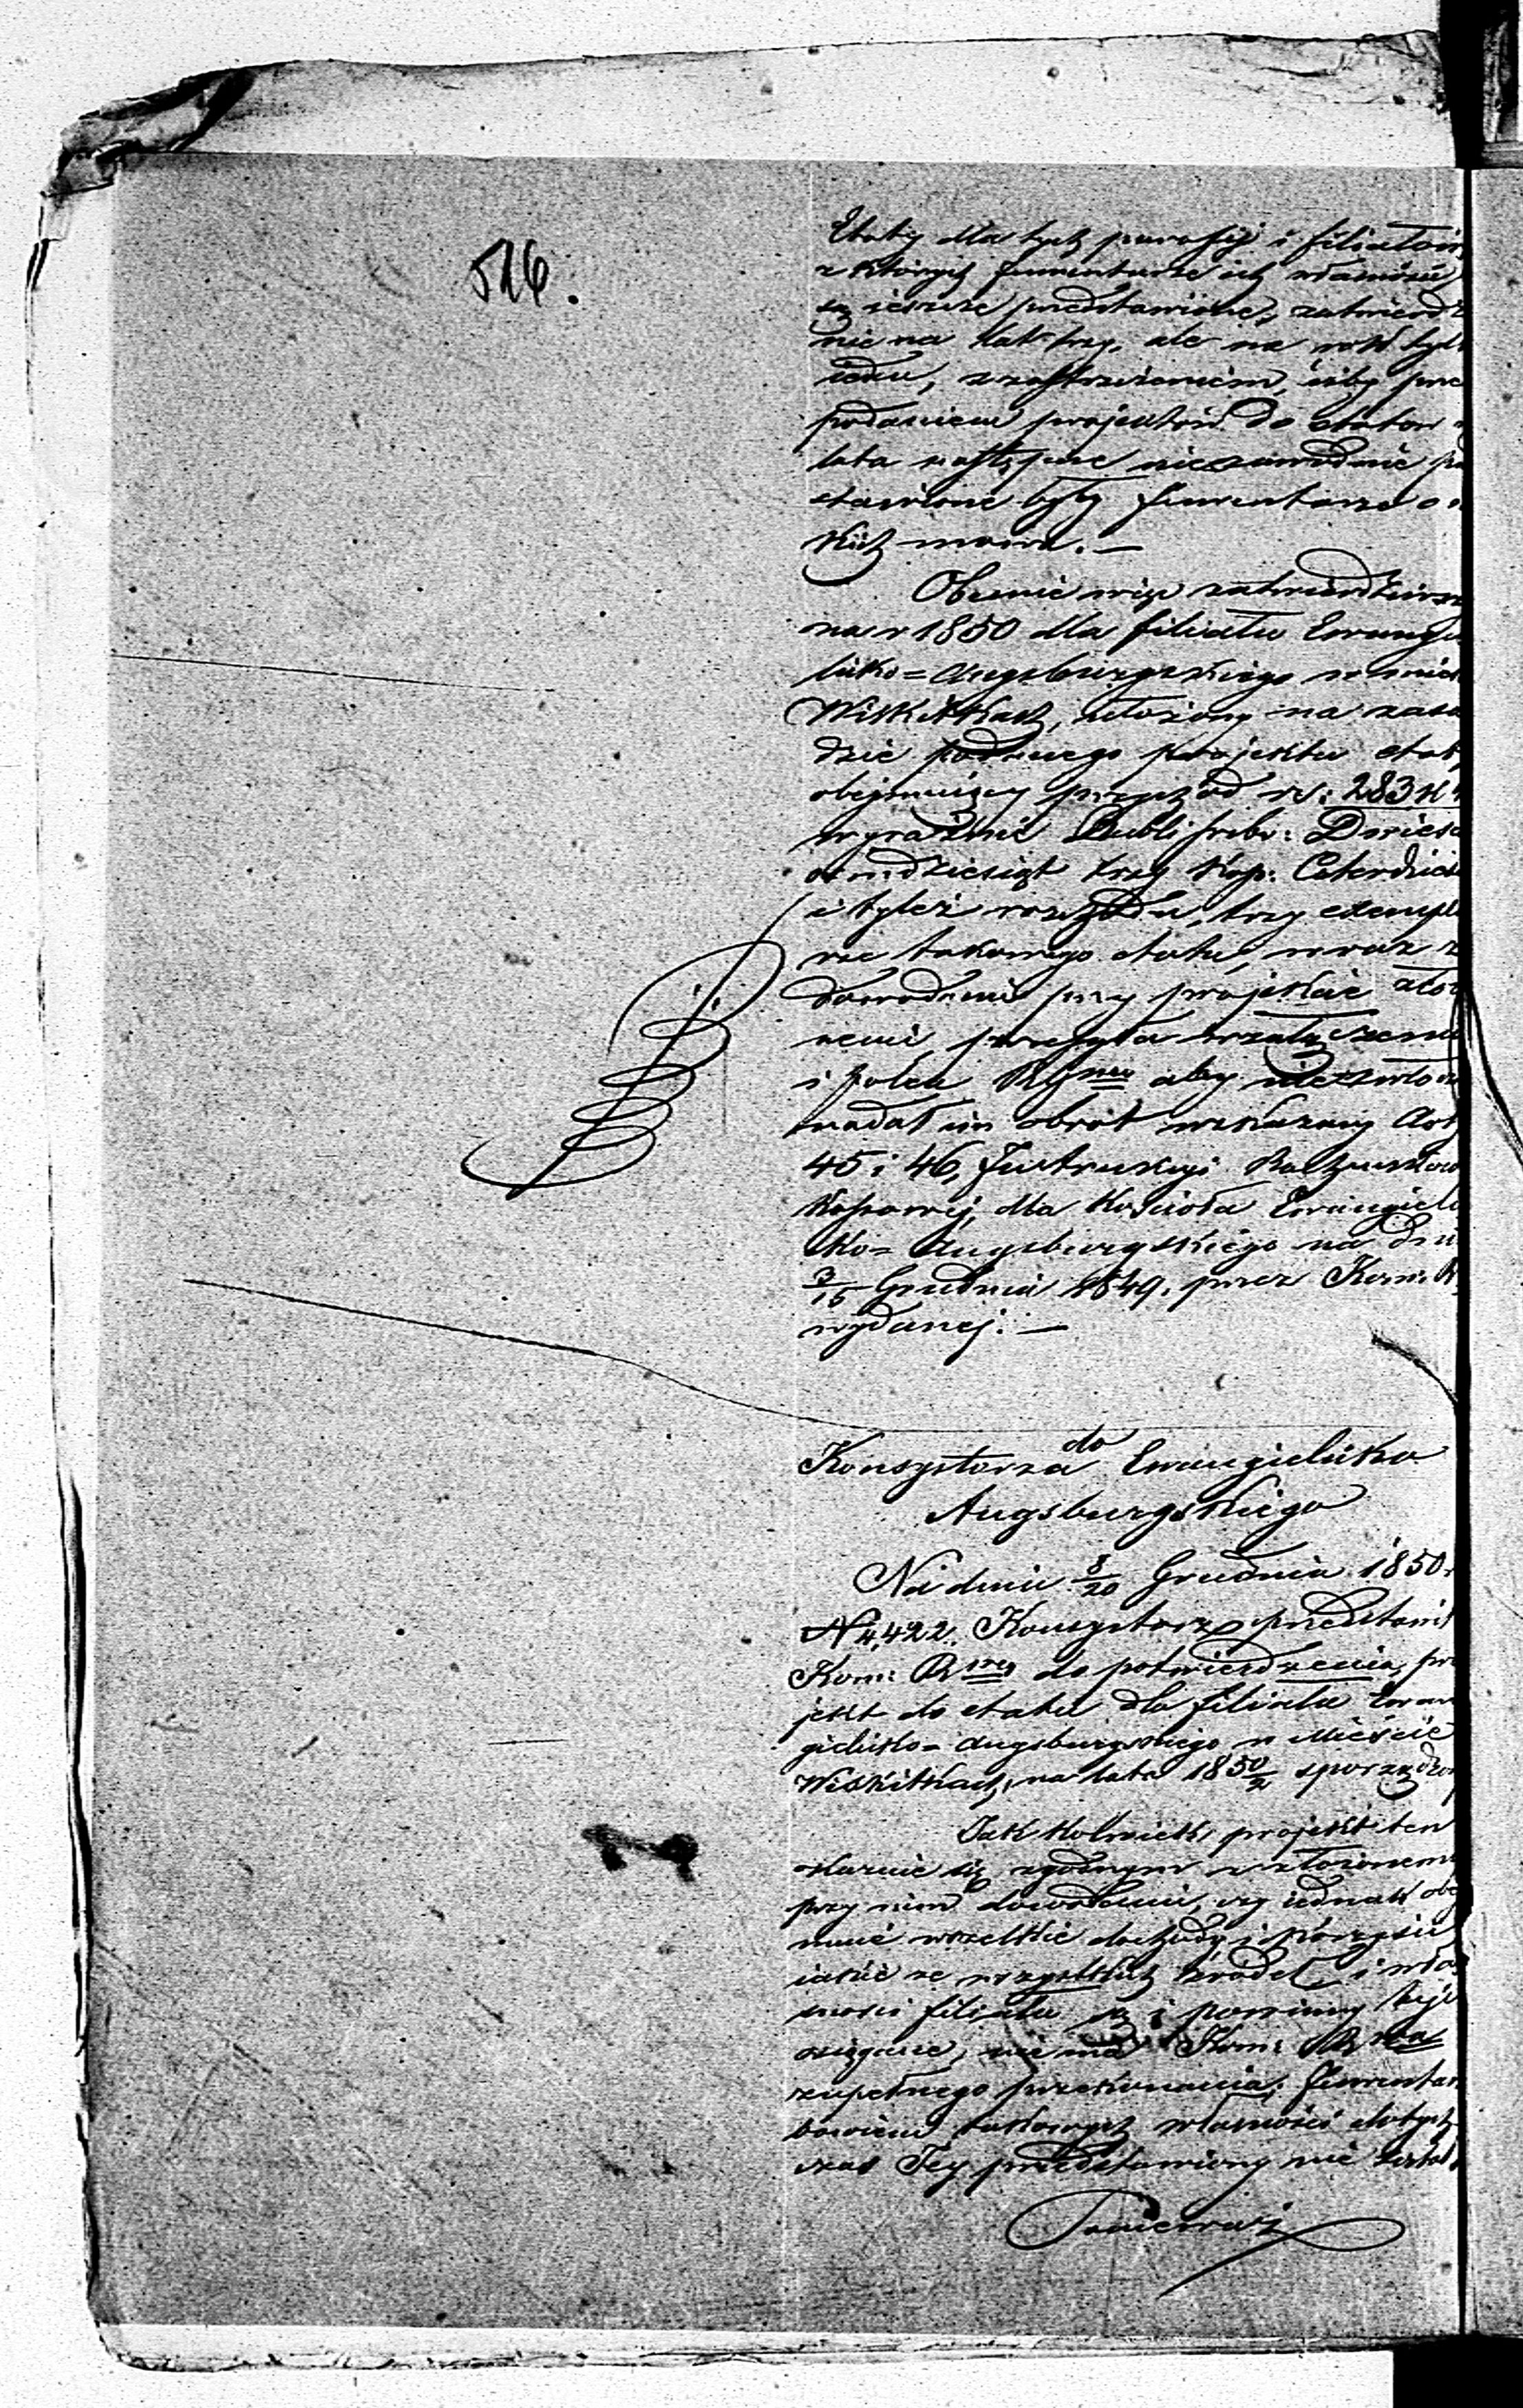 516.
Etaty dla tych parafij i filiałów
z których Inwentarze ich własności
są jeszcze przedstawione, zatwierdz
nie na lat trzy, ale na rok tylk
jeden, z zastrzeżeniem, iżby prze
podaniem projektów do etatów
lata następne niezawodnie prz
stawione były Inwentarze o
kich mowa. —
Obecnie więc zatwierdziwszy
na r 1850 dla filiału Ewangie
licko=Augsburgskiego w mieś
Wiskitkach, ułożony na zasa
dzie podanego projektu etat,
obejmujący przychód rs: 283 k 4
wyraźnie Rubli srebr: Dwieście
ośmdziesiąt trzy kop: Czterdzieś
i tyleż rozchodu, trzy exempla
rze takowego etatu, wraz z
dowodami przy projekcie złożo
nemi przesyła w załączeniu
i poleca aby niezwłocz
nadał im obrót wskazany Art
45 i 46, Instrukcyi Rachunkowo
Kassowej, dla Kościoła Ewangielic
ko=Augsburgskiego na dniu
3/15 Grudnia 1849. przez Kom: R
wydanej. —
do
Konsystorza Ewangielicko
Augsburgskiego
Na dniu 8/20 Grudnia 1850 r
N 4,422. Konsystorz przedstawił
Kom: Rwey do potwierdzenia, pro
jekt do etatu dla filiału Ewan
gielicko=Augsburgskiego w Mieście
Wiskitkach, na lata 1850/2 sporządzon
Jakkolwiek projekt ten
okazuje się zgodnym z złożonemi
przy nim dowodami, czy jednak obej
muie wszelkie dochody i korzyści
jakie ze wszystkich źródeł i włas
ności filiału są i powinny być
osiągane, nie ma Kom: Rwa
zupełnego przekonania; Inwentarz
bowiem takowych własności dotych
czas Jey przedstawiony nie został
Ponieważ